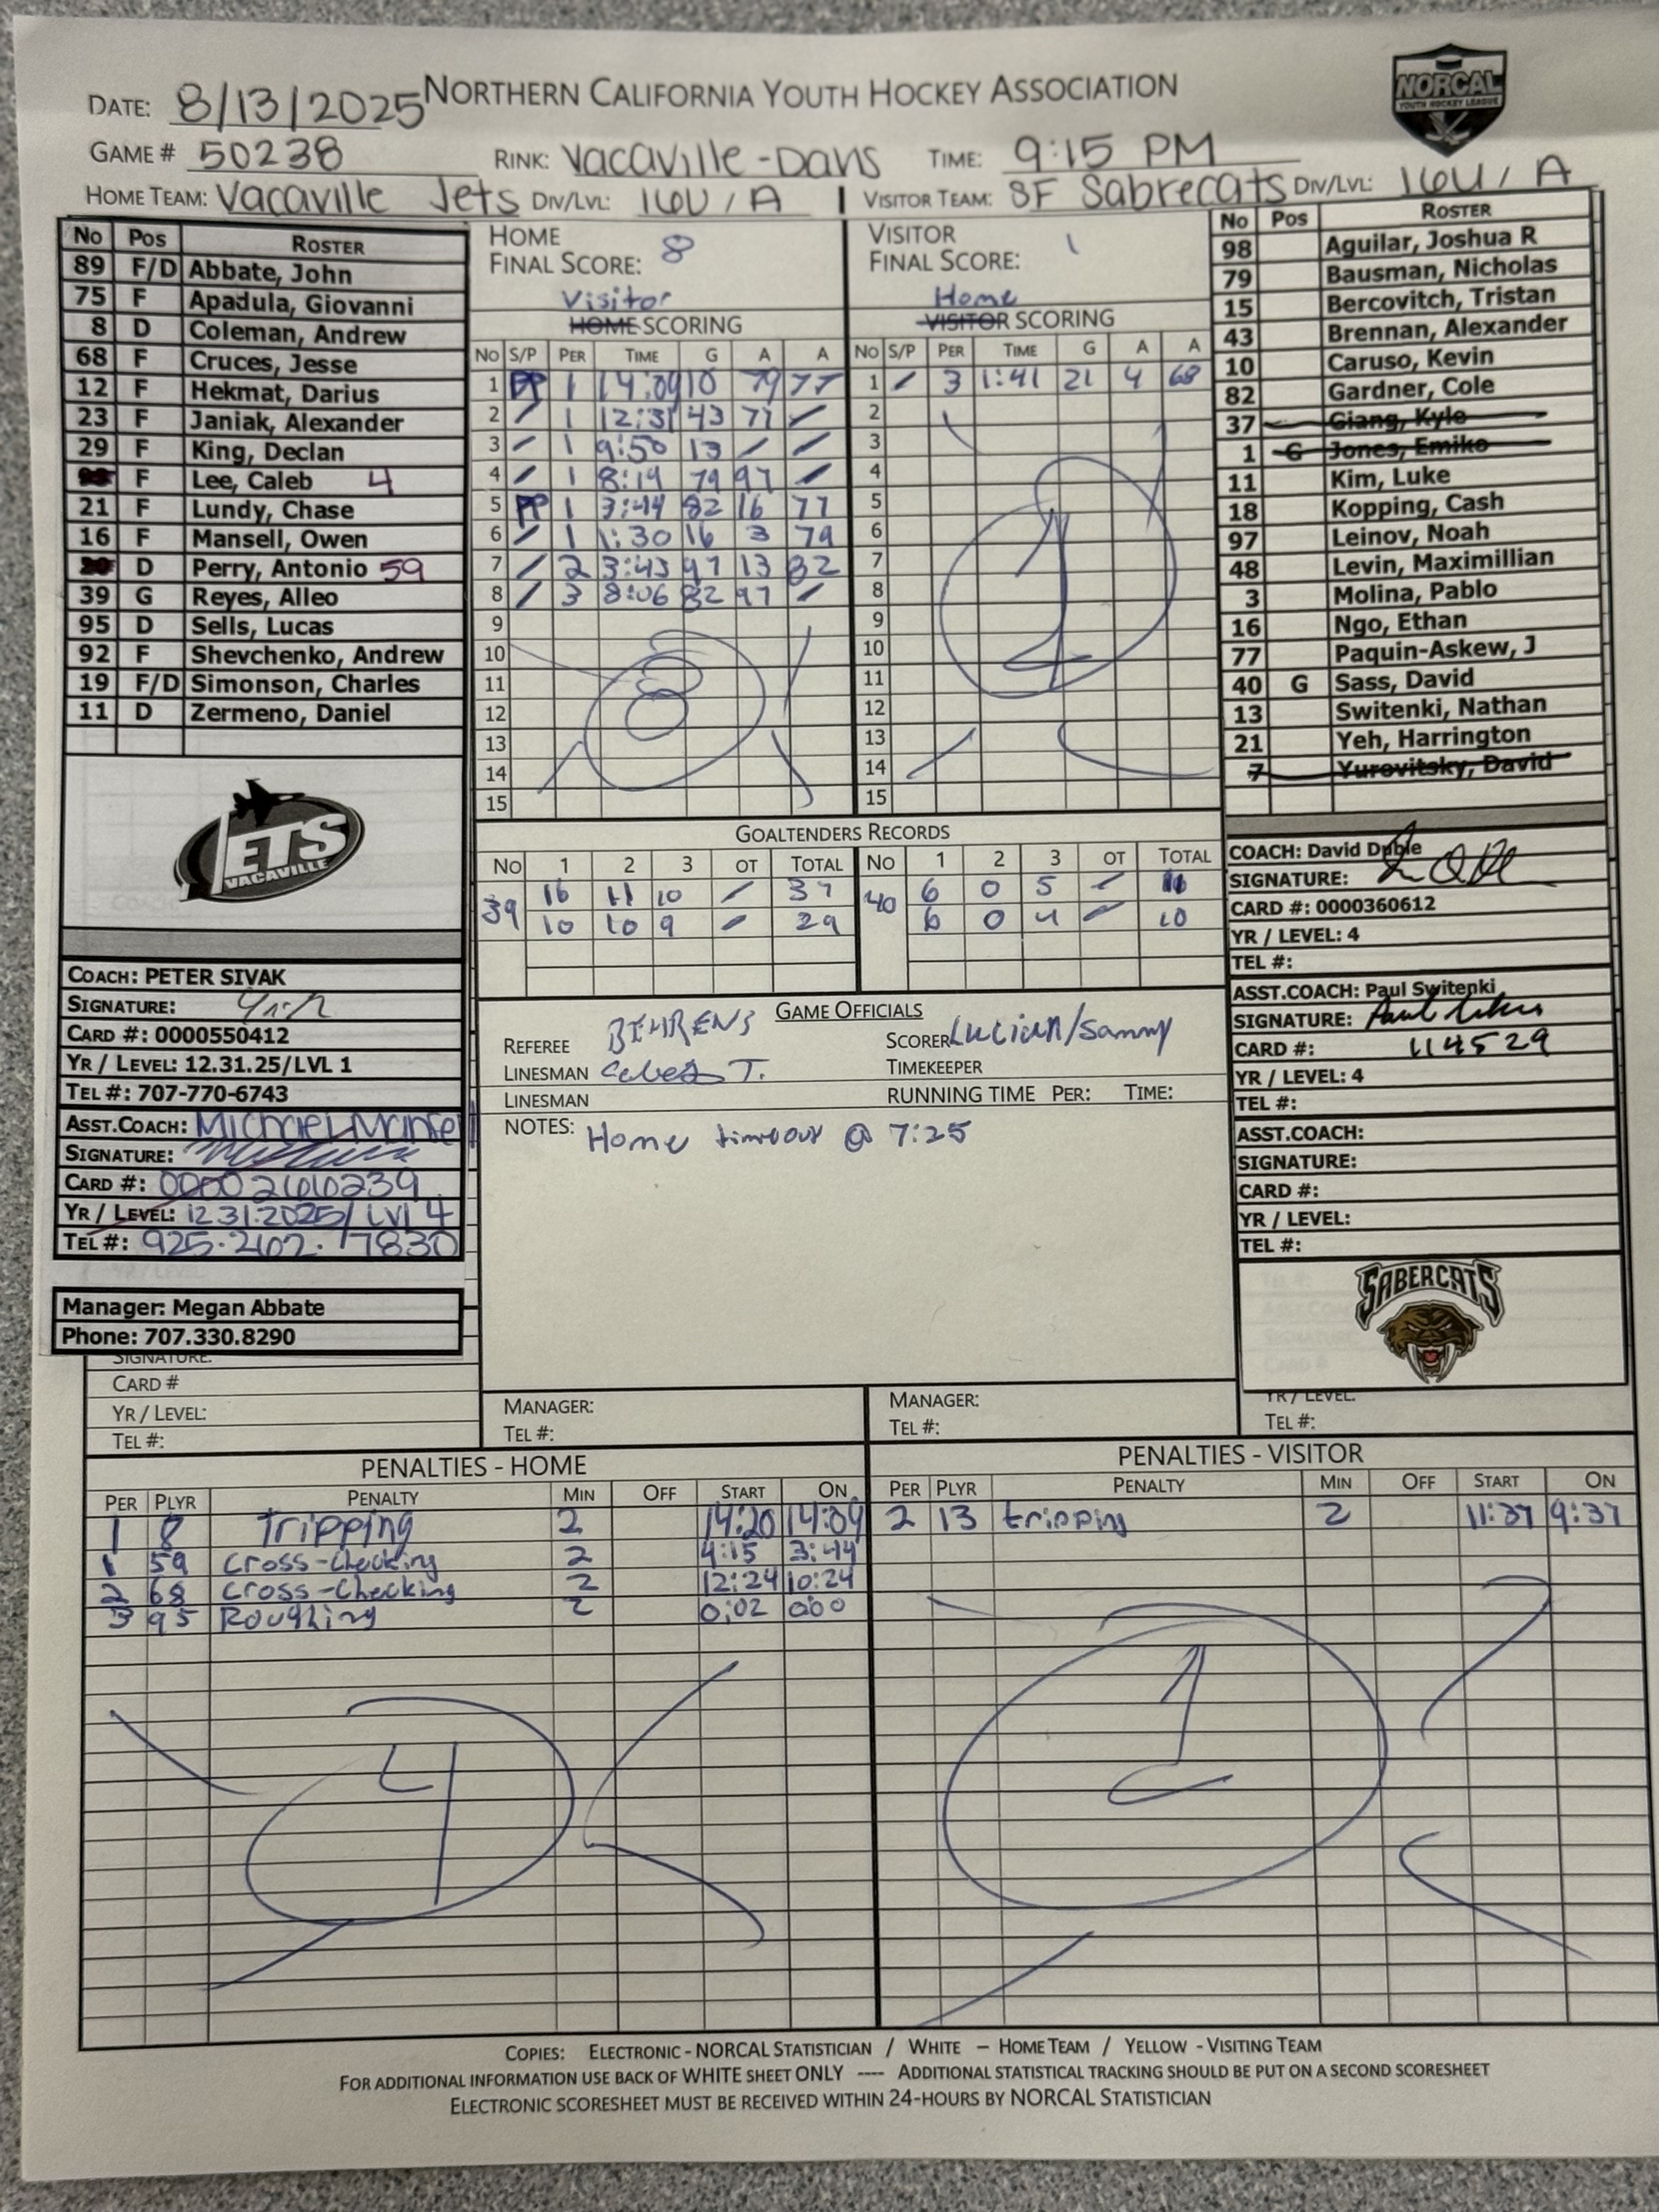 NORTHERN CALIFORNIA YOUTH HOCKEY ASSOCIATION
NORCAL
YOUTH HOCKEY LEAGUE
DATE: 8/13/2025
GAME # 50238 RINK: Vacaville-Davis TIME: 9:15 PM
HOME TEAM: Vacaville Jets DIV/LVL: 16U / A VISITOR TEAM: SF Sabrecats DIV/LVL: 16U / A
No Pos ROSTER
89 F/D Abbate, John
75 F Apadula, Giovanni
8 D Coleman, Andrew
68 F Cruces, Jesse
12 F Hekmat, Darius
23 F Janiak, Alexander
29 F King, Declan
F Lee, Caleb 4
21 F Lundy, Chase
16 F Mansell, Owen
D Perry, Antonio 59
39 G Reyes, Alleo
95 D Sells, Lucas
92 F Shevchenko, Andrew
19 F/D Simonson, Charles
11 D Zermeno, Daniel
JETS
VACAVILLE
COACH: PETER SIVAK
SIGNATURE:
CARD #: 0000550412
YR / LEVEL: 12.31.25/LVL 1
TEL #: 707-770-6743
ASST.COACH: Michael Mansell
SIGNATURE:
CARD #: 0000266239
YR / LEVEL: 12.31.2025/ LVL 4
TEL #: 925.262.7830
Manager: Megan Abbate
Phone: 707.330.8290
SIGNATURE:
CARD #
YR / LEVEL:
TEL #:
HOME
FINAL SCORE: 8
Visitor
HOME SCORING
No S/P PER TIME G A A
1 PP 1 14:09 10 79 77
2 / 1 12:31 43 77 /
3 / 1 9:50 13 / /
4 / 1 8:19 79 97 /
5 PP 1 3:44 82 16 77
6 / 1 1:30 16 3 79
7 / 2 3:43 97 13 82
8 / 3 8:06 82 97 /
9
10
11
12
13
14
15
8
VISITOR
FINAL SCORE: 1
Home
VISITOR SCORING
No S/P PER TIME G A A
1 / 3 1:41 21 4 68
2
3
4
5
6
7
8
9
10
11
12
13
14
15
1
GOALTENDERS RECORDS
No 1 2 3 OT TOTAL No 1 2 3 OT TOTAL
39 16 11 10 / 37 40 6 0 5 / 11
10 10 9 / 29 6 0 4 / 10
GAME OFFICIALS
REFEREE BEHRENS SCORER Lucian/Sammy
LINESMAN T. TIMEKEEPER
LINESMAN RUNNING TIME PER: TIME:
NOTES: Home timeout @ 7:25
MANAGER: MANAGER:
TEL #: TEL #:
No Pos ROSTER
98 Aguilar, Joshua R
79 Bausman, Nicholas
15 Bercovitch, Tristan
43 Brennan, Alexander
10 Caruso, Kevin
82 Gardner, Cole
37 Giang, Kyle
1 G Jones, Emiko
11 Kim, Luke
18 Kopping, Cash
97 Leinov, Noah
48 Levin, Maximillian
3 Molina, Pablo
16 Ngo, Ethan
77 Paquin-Askew, J
40 G Sass, David
13 Switenki, Nathan
21 Yeh, Harrington
7 Yurovitsky, David
COACH: David Duble
SIGNATURE:
CARD #: 0000360612
YR / LEVEL: 4
TEL #:
ASST.COACH: Paul Switenki
SIGNATURE:
CARD #: 114529
YR / LEVEL: 4
TEL #:
ASST.COACH:
SIGNATURE:
CARD #:
YR / LEVEL:
TEL #:
SABERCATS
YR / LEVEL:
TEL #:
PENALTIES - HOME
PER PLYR PENALTY MIN OFF START ON
1 8 Tripping 2 14:20 14:09
1 59 Cross-Checking 2 4:15 3:44
2 68 Cross-Checking 2 12:24 10:24
3 95 Roughing 2 0:02 0:00
4
PENALTIES - VISITOR
PER PLYR PENALTY MIN OFF START ON
2 13 tripping 2 11:37 9:37
1
COPIES: ELECTRONIC - NORCAL STATISTICIAN / WHITE – HOME TEAM / YELLOW - VISITING TEAM
FOR ADDITIONAL INFORMATION USE BACK OF WHITE SHEET ONLY ---- ADDITIONAL STATISTICAL TRACKING SHOULD BE PUT ON A SECOND SCORESHEET
ELECTRONIC SCORESHEET MUST BE RECEIVED WITHIN 24-HOURS BY NORCAL STATISTICIAN